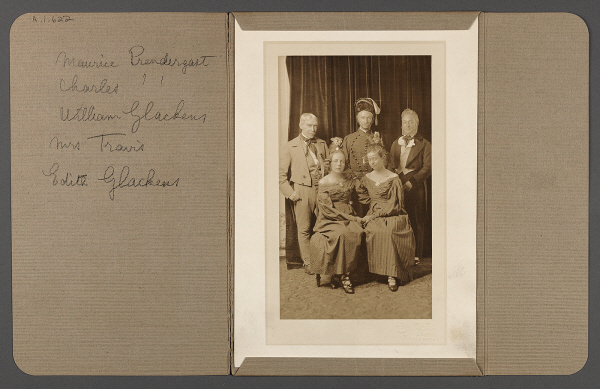 A.11.622
Maurice Prendergast
Charles " "
William Glackens
Mrs Travis
Edith Glackens